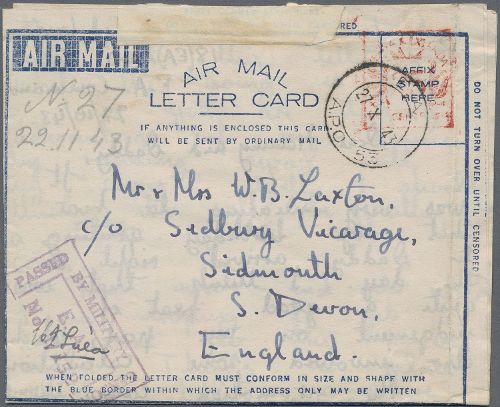 AIR MAIL
AIR MAIL
LETTER CARD
IF ANYTHING IS ENCLOSED THIS CARD
WILL BE SENT BY ORDINARY MAIL
AFFIX
STAMP
HERE
A.P.O. 53
No 27
22.11.43
Mr & Mrs W.B. Laxton,
c/o Sidbury Vicarage,
Sidmouth
S. Devon,
England.
PASSED BY MILITARY
No
DO NOT TURN OVER UNTIL CENSORED
WHEN FOLDED THE LETTER CARD MUST CONFORM IN SIZE AND SHAPE WITH
THE BLUE BORDER WITHIN WHICH THE ADDRESS ONLY MAY BE WRITTEN